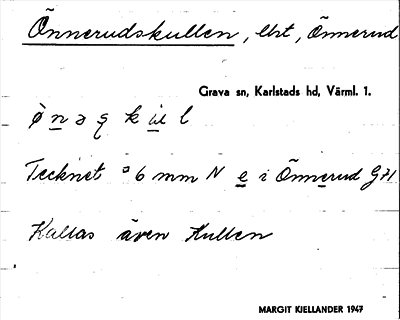 Önnerudskullen, lht, Önnerud
Grava sn, Karlstads hd, Värml. 1.
Tecknet ° 6 mm N e i Önnerud G71
Kallas även Kullen
MARGIT KJELLANDER 1947